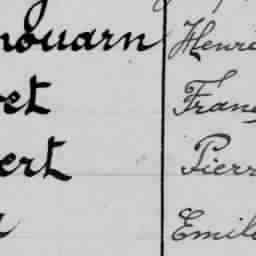 nouarn Henri
et Fran
ert Pierr
Emil